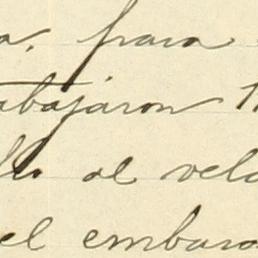 a, para
abajaron
al vela
el embarc